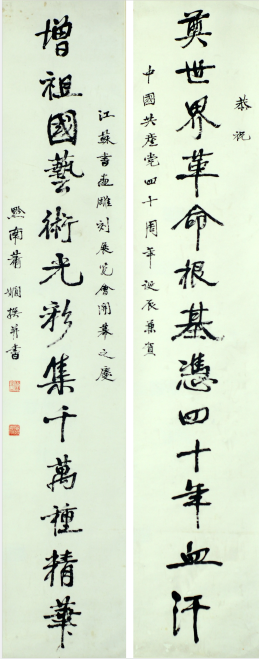 恭祝
奠世界革命根基憑四十年血汗
中國共產党四十周年诞辰兼賀
江蘇書画雕刻展览會開幕之慶
增祖國藝術光彩集千萬種精華
黔南蕭嫻撰并書